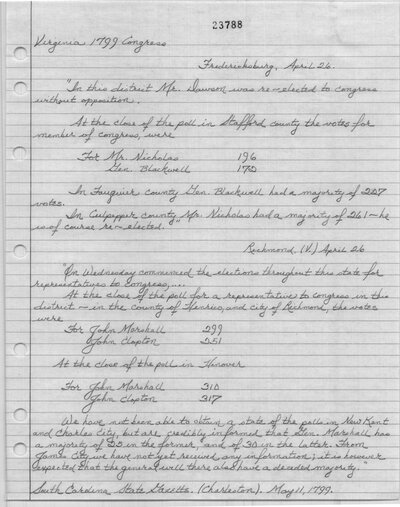 23788
Virginia 1799 Congress
Fredericksburg, April 26.
"In this district Mr. Dawson was re-elected to congress
without opposition.
At the close of the poll in Stafford county the votes for
member of congress, were
For Mr. Nicholas 196
Gen. Blackwell 170
In Fauquier county Gen. Blackwell had a majority of 227
votes.
In Culpepper county, Mr. Nicholas had a majority of 261 - he
is of course re-elected.
Richmond, (V.) April 26
"On Wednesday commenced the elections throughout this state for
representatives to Congress, ....
At the close of the poll for a representative to congress in this
district - in the county of Henrico, and city of Richmond, the votes
were
For John Marshall 299
John Clopton 251
At the close of the poll in Hanover
For John Marshall 310
John Clopton 317
We have not been able to obtain a state of the polls in New Kent
and Charles City, but are credibly informed that Gen. Marshall has
a majority of 25 in the former and of 30 in the latter. From
James City we have not yet received any information; it is however
expected that the general will there also have a decided majority."
South Carolina State Gazette. (Charleston). May 11, 1799.